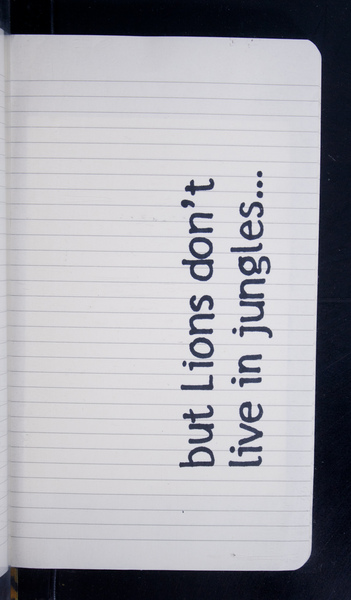 but Lions don't
live in jungles...